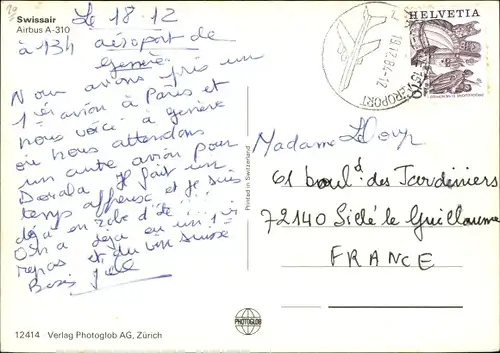 Swissair
Airbus A-310
Le 18.12
à 13h aéroport de
Genève
Nous avons pris un
1er avion à Paris et
nous voici à genève
où nous attendons
un autre avion pour
Douala. Il fait un
temps affreux et je suis
déjà en robe d'été
On a déjà eu un 1er
repas et du vin suisse
Bises
12414 Verlag Photoglob AG, Zürich
Printed in Switzerland
PHOTOGLOB
HELVETIA
70
19.12.84-12
AEROPORT
Madame
61 boul^d des Jardiniers
72140 Sillé le Guillaume
FRANCE